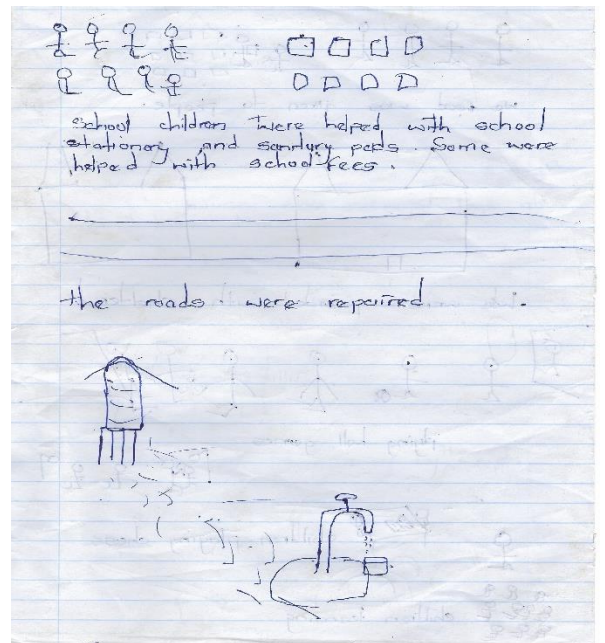 school children were helped with school
stationery and sanitary pads. Some were
helped with school fees.
the roads were repaired.